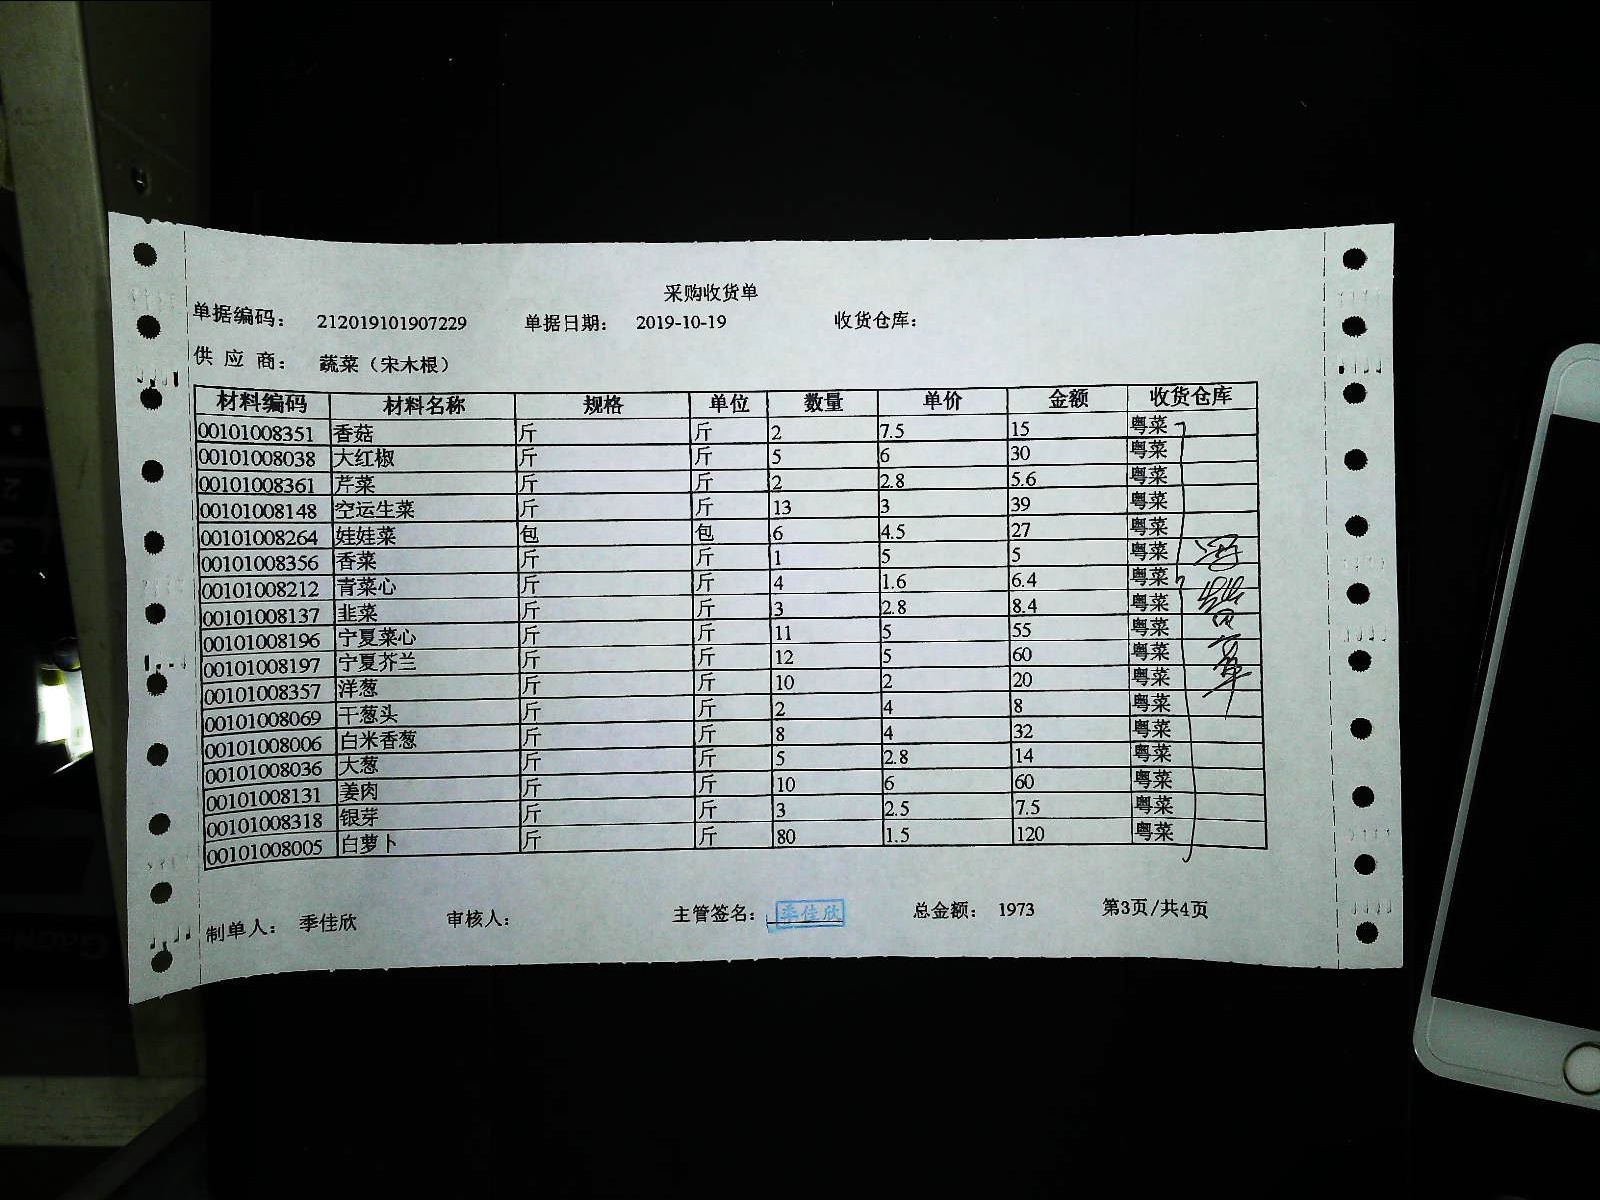 采购收货单
单据编码： 212019101907229 单据日期： 2019-10-19 收货仓库：
供 应 商： 蔬菜（宋木根）
材料编码 材料名称 规格 单位 数量 单价 金额 收货仓库
00101008351 香菇 斤 斤 2 7.5 15 粤菜
00101008038 大红椒 斤 斤 5 6 30 粤菜
00101008361 芹菜 斤 斤 2 2.8 5.6 粤菜
00101008148 空运生菜 斤 斤 13 3 39 粤菜
00101008264 娃娃菜 包 包 6 4.5 27 粤菜
00101008356 香菜 斤 斤 1 5 5 粤菜
00101008212 青菜心 斤 斤 4 1.6 6.4 粤菜
00101008137 韭菜 斤 斤 3 2.8 8.4 粤菜
00101008196 宁夏菜心 斤 斤 11 5 55 粤菜
00101008197 宁夏芥兰 斤 斤 12 5 60 粤菜
00101008357 洋葱 斤 斤 10 2 20 粤菜
00101008069 干葱头 斤 斤 2 4 8 粤菜
00101008006 白米香葱 斤 斤 8 4 32 粤菜
00101008036 大葱 斤 斤 5 2.8 14 粤菜
00101008131 姜肉 斤 斤 10 6 60 粤菜
00101008318 银芽 斤 斤 3 2.5 7.5 粤菜
00101008005 白萝卜 斤 斤 80 1.5 120 粤菜
制单人： 季佳欣 审核人： 主管签名： 季佳欣 总金额： 1973 第3页/共4页